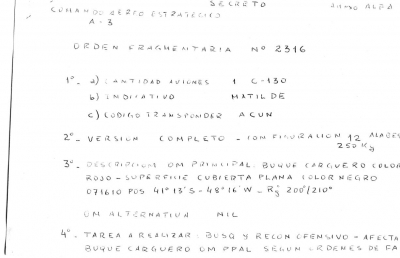 SECRETO
COMANDO AEREO ESTRATEGICO
A-3
ORDEN FRAGMENTARIA Nº 2316
1º- a) CANTIDAD AVIONES 1 C-130
b) INDICATIVO MATILDE
c) CODIGO TRANSPONDER ACUN
2º- VERSION COMPLETO - CONFIGURACION 12
250 Kg
3º- DESCRIPCION OM PRINCIPAL: BUQUE CARGUERO COLOR
ROJO - SUPERFICIE CUBIERTA PLANA COLOR NEGRO
071610 POS 41º13'S - 48º16'W - Rº 200º/210º
OM ALTERNATIVA NIL
4º- TAREA A REALIZAR: BUSQ Y RECON OFENSIVO - AFECTA
BUQUE CARGUERO OM PPAL SEGUN ORDENES DE FA